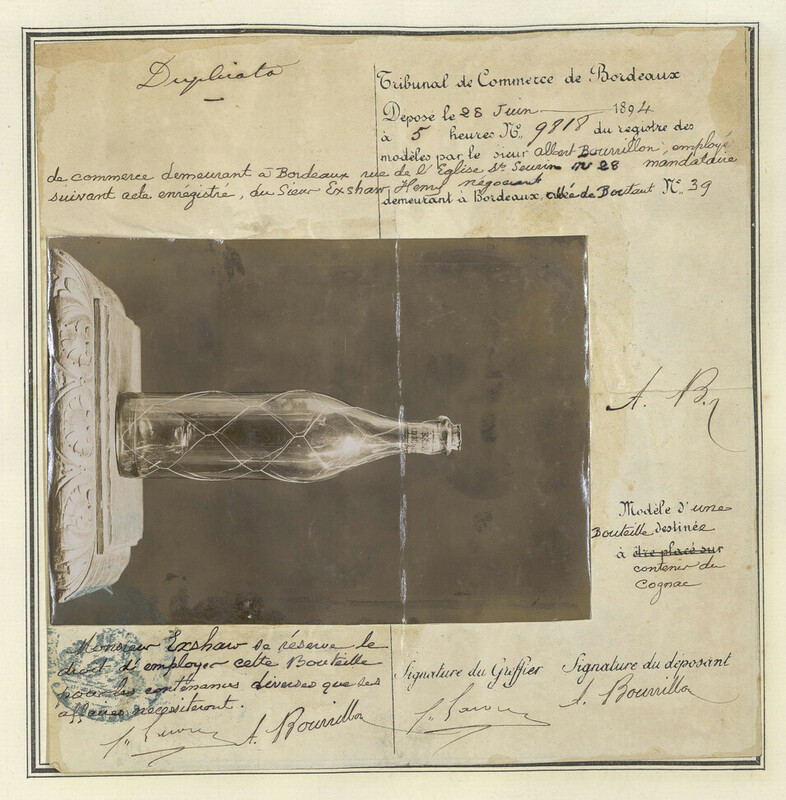 Duplicata
Tribunal de Commerce de Bordeaux
Déposé le 28 Juin 1894
à 5 heures N° 9818 du registre des
modèles par le sieur Albert Bourrillon, employé
de commerce demeurant à Bordeaux rue de l'Eglise St Seurin N° 28 mandataire
suivant acte enrégistré, du Sieur Exshaw Henry négociant
demeurant à Bordeaux, allée de Boutaut N° 39
A. B.
Modèle d'une
Bouteille destinée
à être placé sur
contenir du
Cognac
Monsieur Exshaw se réserve le
droit d'employer cette Bouteille
pour les contenances diverses que ses
affaires nécessiteront.
A. Bourrillon
Signature du Greffier
Signature du déposant
A. Bourrillon